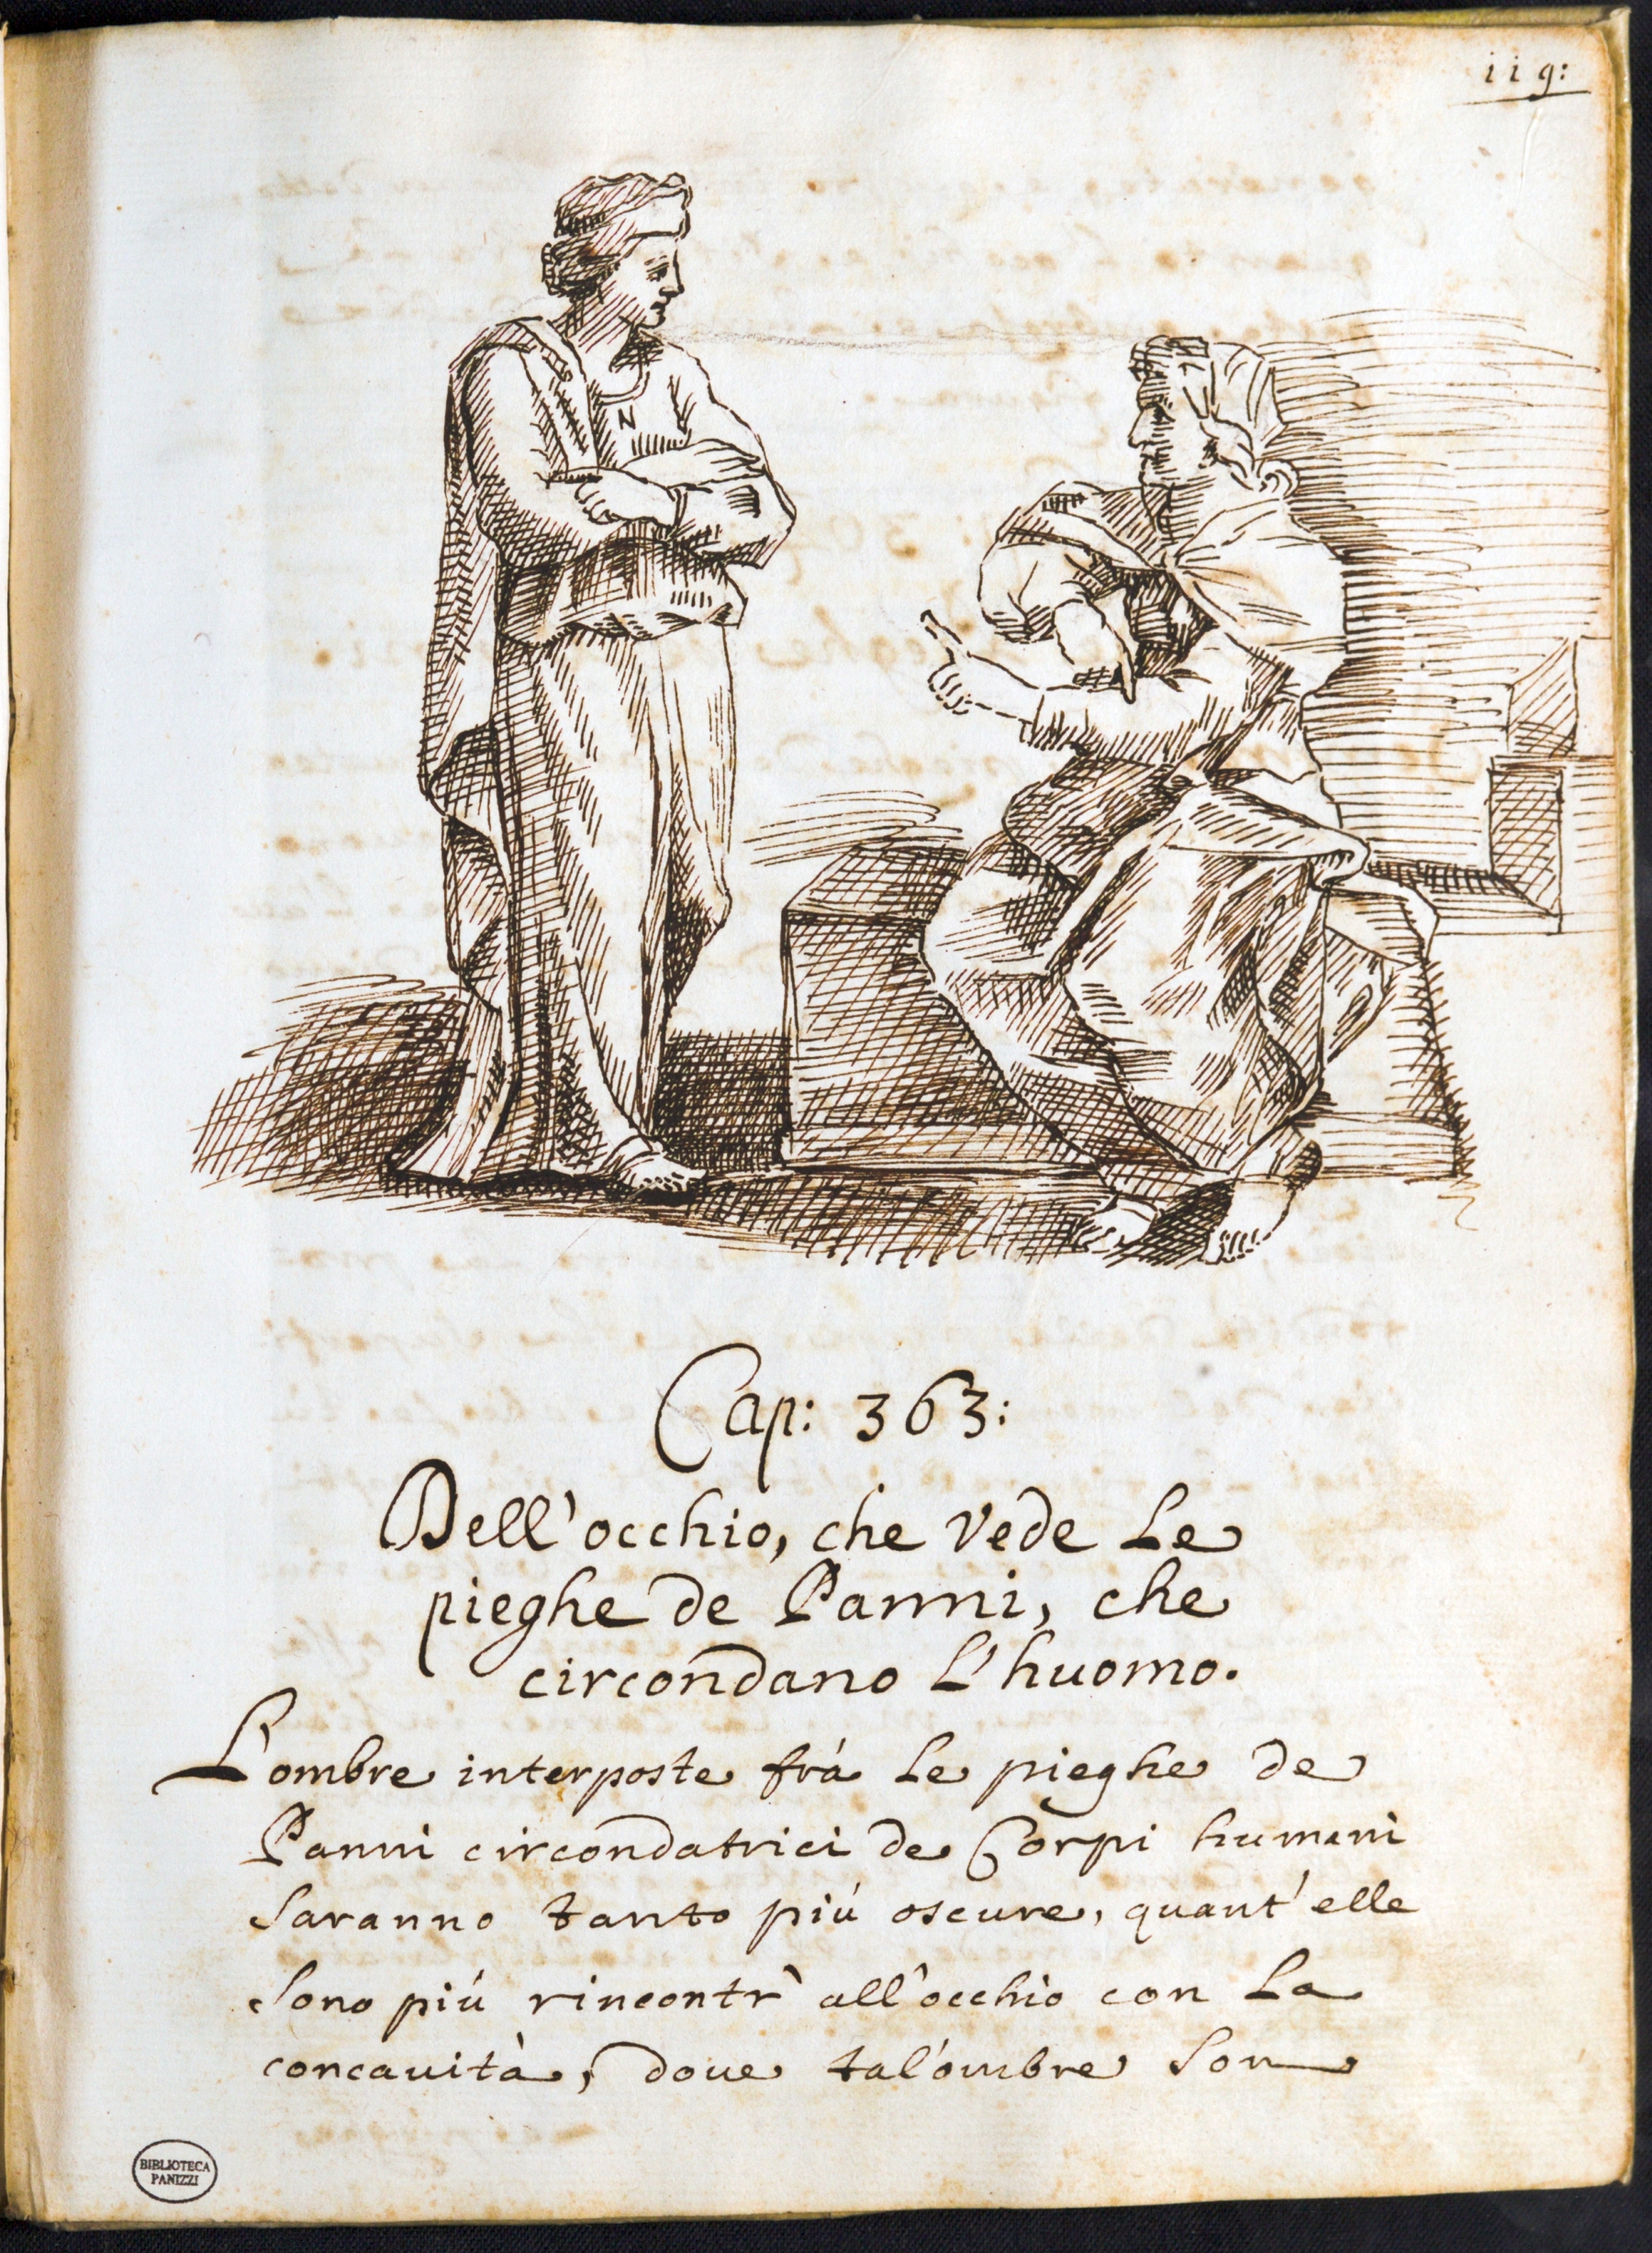 119:
N
Cap: 363:
Dell'occhio, che vede Le
pieghe de Panni, che
circondano L'huomo.
L'ombre interposte frà Le pieghe de
Panni circondatrici de Corpi humani
Saranno tanto più oscure, quant'elle
Sono più rincontr' all'occhio con La
concauità, doue tal'ombre Son
BIBLIOTECA
PANIZZI